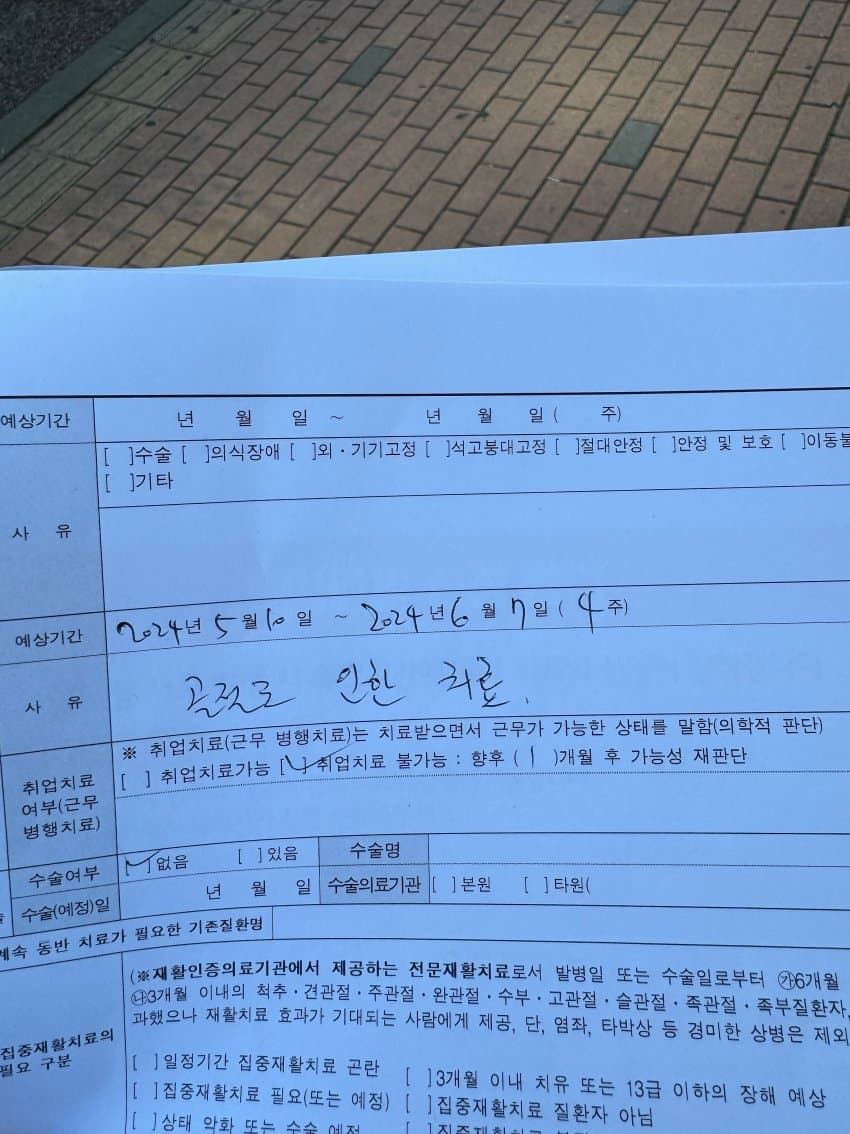 예상기간 년 월 일 ~ 년 월 일 ( 주)
[ ]수술 [ ]의식장애 [ ]외·기기고정 [ ]석고붕대고정 [ ]절대안정 [ ]안정 및 보호 [ ]이동불
[ ]기타
사 유
예상기간 2024년 5월 10일 ~ 2024년 6월 7일 ( 4주)
사 유 골절로 인한 치료.
※ 취업치료(근무 병행치료)는 치료받으면서 근무가 가능한 상태를 말함(의학적 판단)
취업치료
여부(근무
병행치료)
[ ] 취업치료가능 [✓] 취업치료 불가능 : 향후 ( 1 )개월 후 가능성 재판단
수술여부 [✓]없음 [ ]있음 수술명
수술(예정)일 년 월 일 수술의료기관 [ ]본원 [ ]타원(
계속 동반 치료가 필요한 기존질환명
집중재활치료의
필요 구분
(※재활인증의료기관에서 제공하는 전문재활치료로서 발병일 또는 수술일로부터 ㉮6개월
㉯3개월 이내의 척추·견관절·주관절·완관절·수부·고관절·슬관절·족관절·족부질환자,
과했으나 재활치료 효과가 기대되는 사람에게 제공, 단, 염좌, 타박상 등 경미한 상병은 제외
[ ]일정기간 집중재활치료 곤란 [ ]3개월 이내 치유 또는 13급 이하의 장해 예상
[ ]집중재활치료 필요(또는 예정) [ ]집중재활치료 질환자 아님
[ ]상태 악화 또는 수술 예정